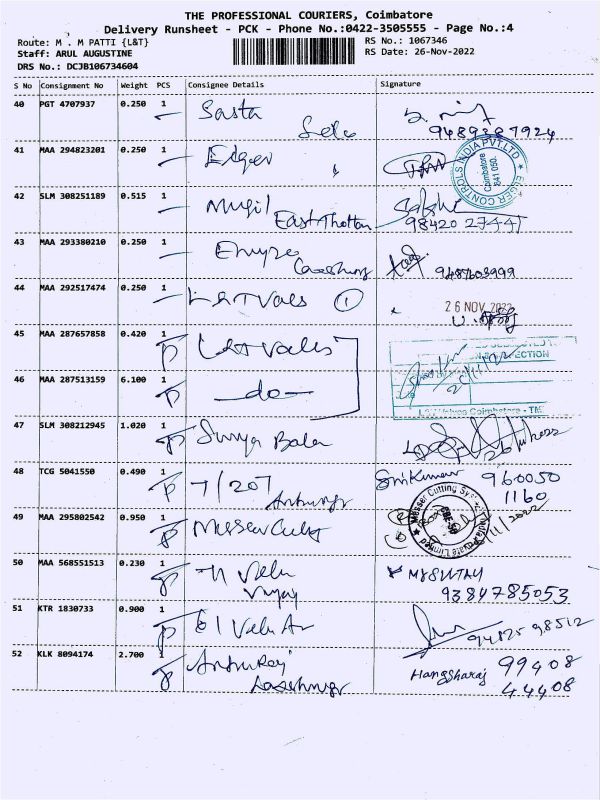 THE PROFESSIONAL COURIERS, Coimbatore
Delivery Runsheet - PCK - Phone No.:0422-3505555 - Page No.:4
Route: M . M PATTI {L&T}
RS No.: 1067346
Staff: ARUL AUGUSTINE
RS Date: 26-Nov-2022
DRS No.: DCJB106734604
S No Consignment No Weight PCS Consignee Details Signature
40 PGT 4707937 0.250 1 Sasta
9489387924
41 MAA 294823201 0.250 1
ELGER CONTROLS INDIA PVT LTD
Coimbatore
641 050.
42 SLM 308251189 0.515 1 Mugil
East Thottam
98420 27441
43 MAA 293380210 0.250 1
9487603999
44 MAA 292517474 0.250 1 L&T Valves 1
26 NOV 2022
45 MAA 287657858 0.420 1 L&T Valves
46 MAA 287513159 6.100 1 -do-
L&T Valves Coimbatore - TM
47 SLM 308212945 1.020 1 Surya Bala
48 TCG 5041550 0.490 1 7/207
Srikumar 960050
1160
49 MAA 295802542 0.950 1 Messer Cut
Messer Cutting Systems India Private Limited
CBE-50
50 MAA 568551513 0.230 1 Velu
Vijay
9384785053
51 KTR 1830733 0.900 1 Velu
94825 98512
52 KLK 8094174 2.700 1
Hangsharaj 99408
44408